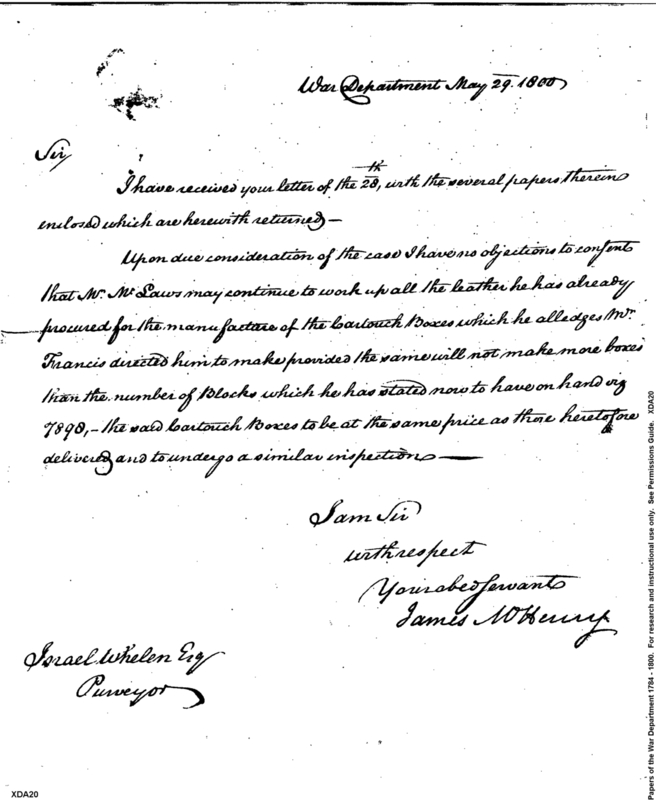 War Department May 29. 1800
Sir
I have received your letter of the 28th, with the several papers therein
enclosed which are herewith returned —
Upon due consideration of the case I have no objections to consent
that Mr. Mc Laws may continue to work up all the leather he has already
procured for the manufacture of the Cartouch Boxes which he alledges Mr.
Francis directed him to make provided the same will not make more boxes
than the number of Blocks which he has stated now to have on hand viz
7898, — the said Cartouch Boxes to be at the same price as those heretofore
delivered and to undergo a similar inspection —
I am Sir
with respect
Your obed servant
James McHenry
Israel Whelen Esq
Purveyor
XDA20
Papers of the War Department 1784 - 1800. For research and instructional use only. See Permissions Guide. XDA20